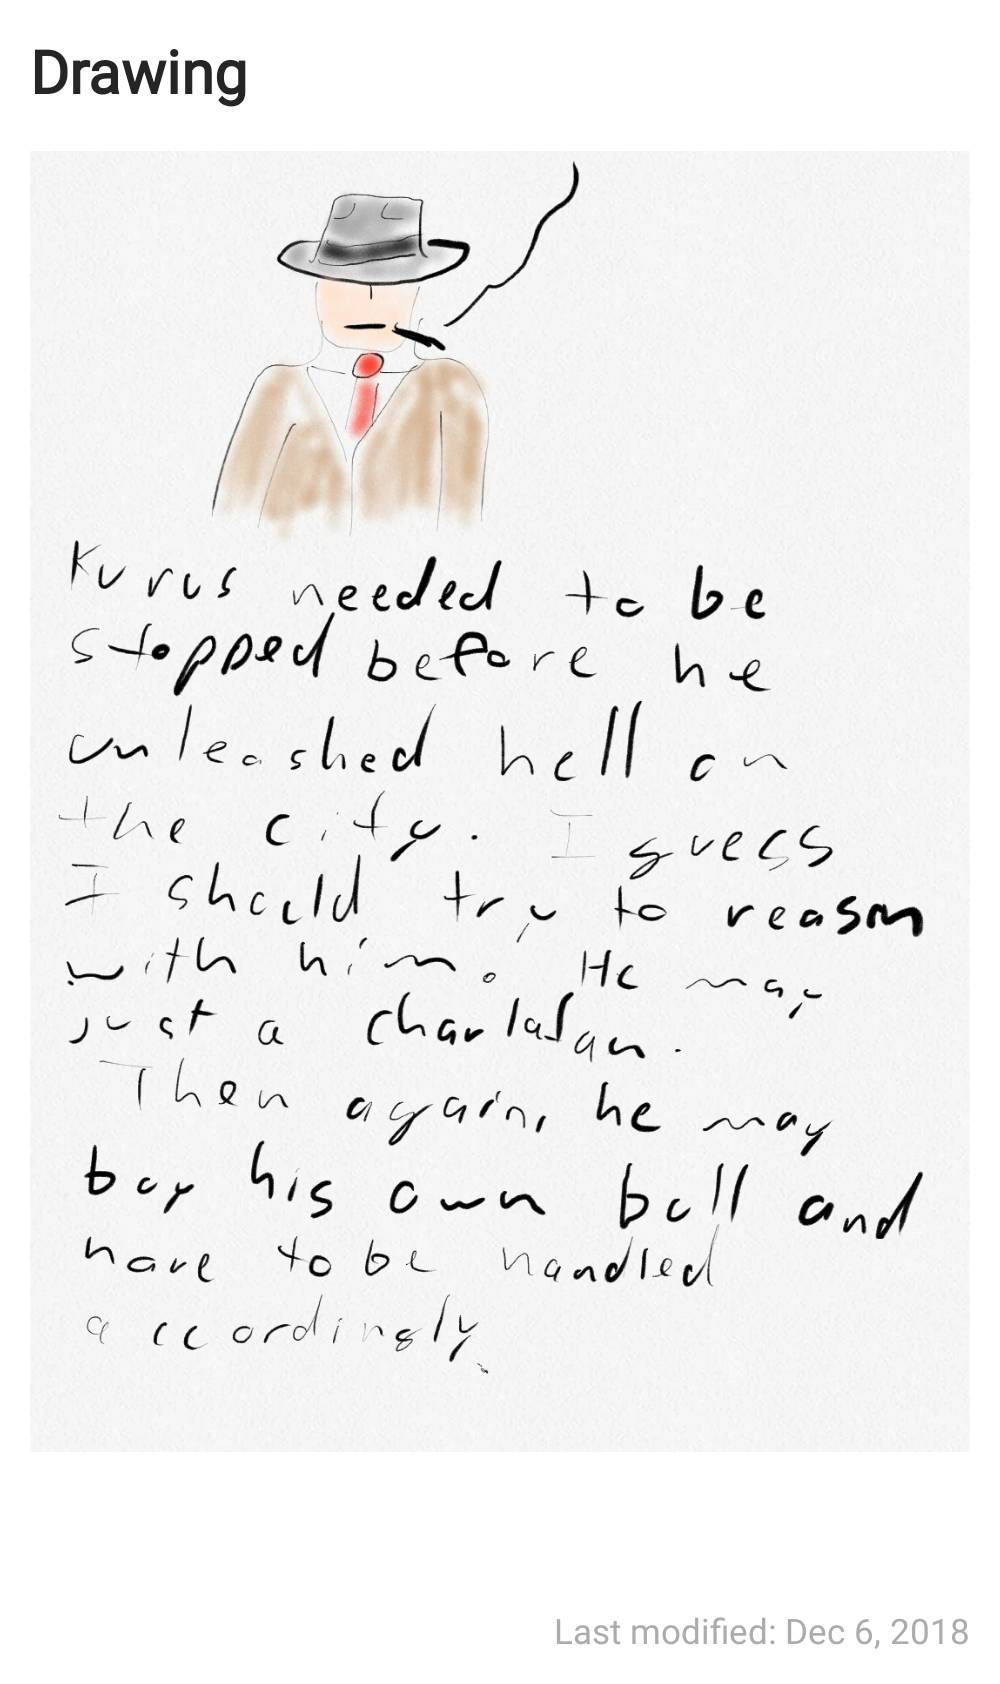 Drawing
Kurus needed to be
stopped before he
unleashed hell on
the city. I guess
I should try to reason
with him. He may
just a charlatan.
Then again, he may
buy his own bull and
have to be handled
accordingly.
Last modified: Dec 6, 2018